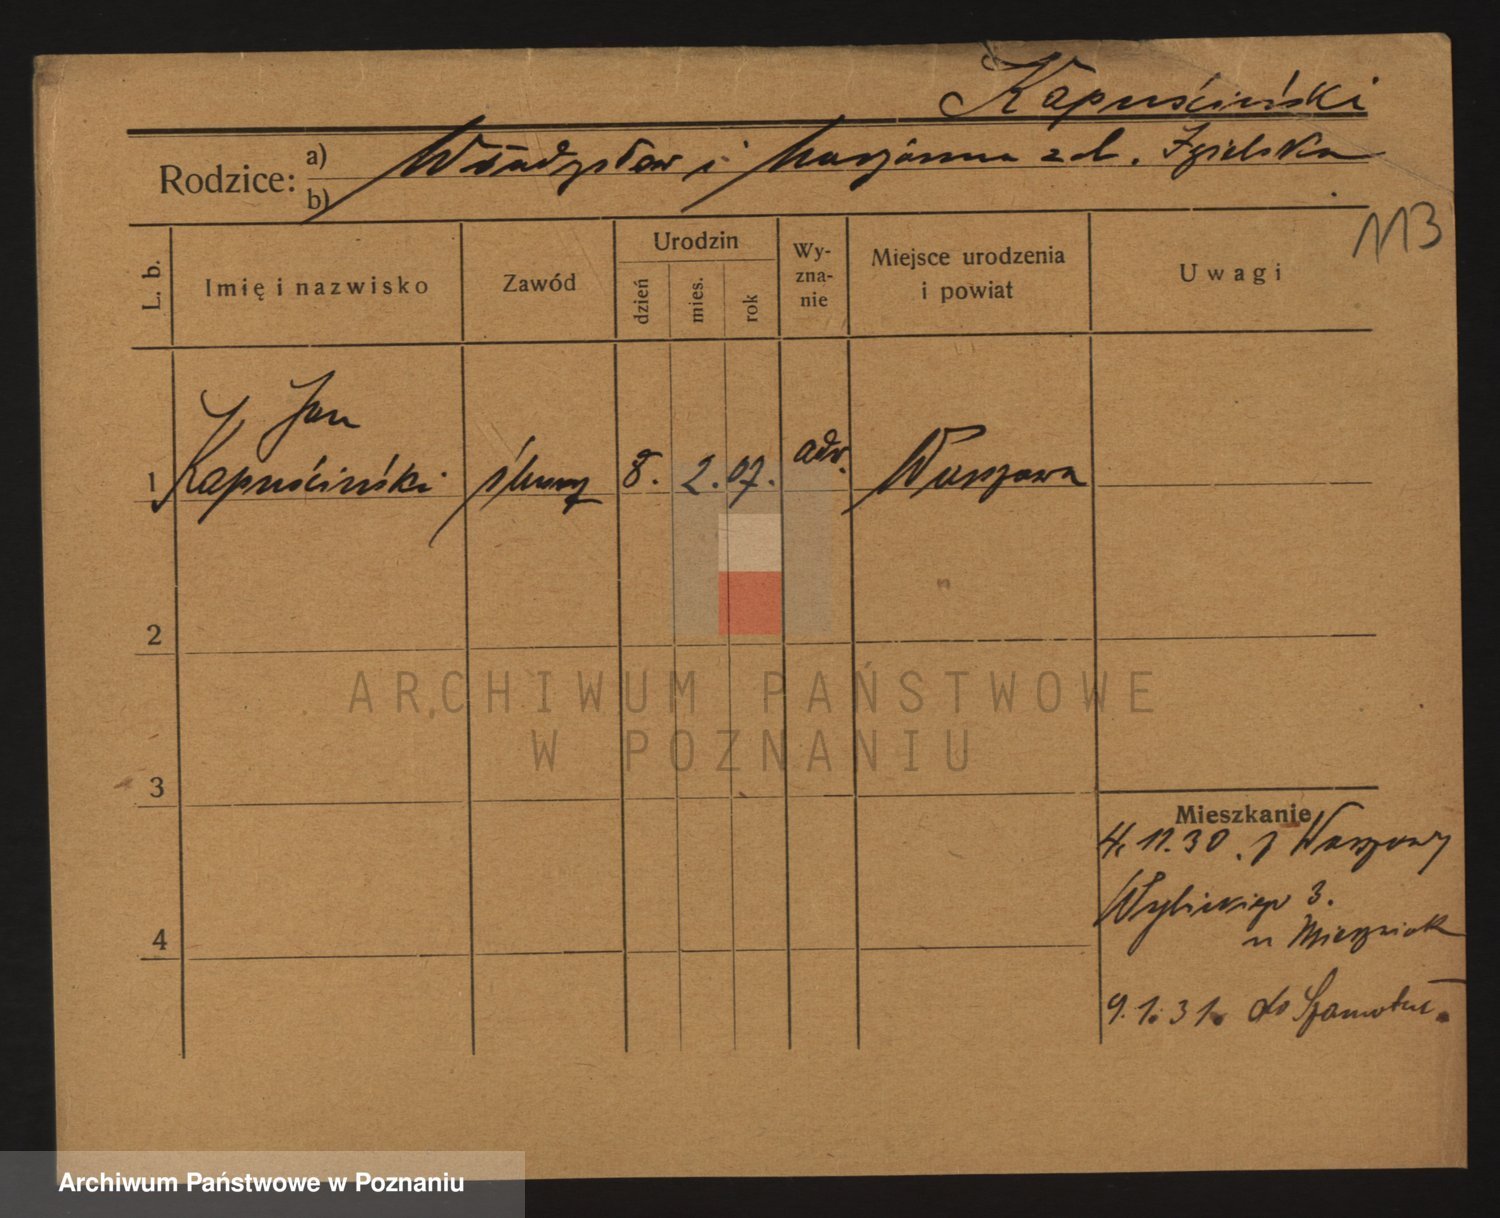 Kapuściński
Rodzice: a) Władysław i Marjanna zd. Zgielska
b)
113
L. b.
Imię i nazwisko
Zawód
Urodzin
dzień
mies.
rok
Wy-
zna-
nie
Miejsce urodzenia
i powiat
Uwagi
Jan
1 Kapuściński 8. 2. 07. adv. Warszawa
2
3
4
ARCHIWUM PAŃSTWOWE
W POZNANIU
Mieszkanie
4. 11. 30. z Warszawy
Wybickiego 3.
u
9. 1. 31. do Szamotuł.
Archiwum Państwowe w Poznaniu